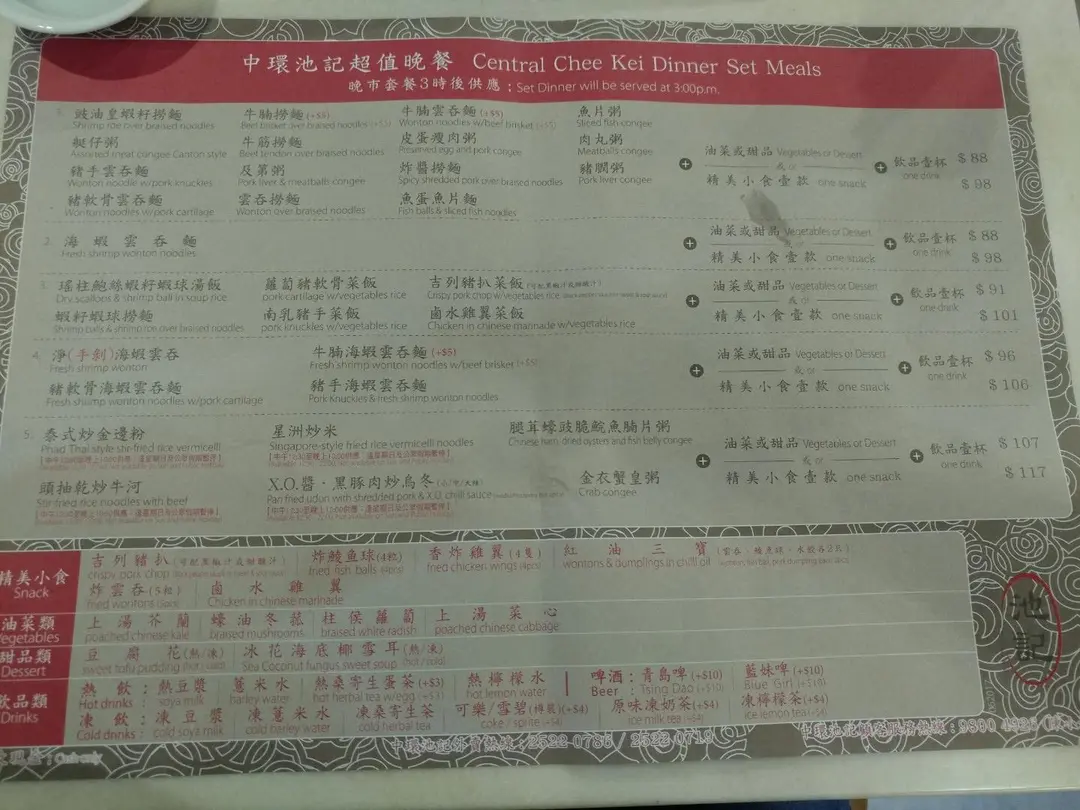 中環池記超值晚餐 Central Chee Kei Dinner Set Meals
晚市套餐3時後供應：Set Dinner will be served at 3:00p.m.
豉油皇蝦籽撈麵 牛腩撈麵(+$5) 牛腩雲吞麵(+$5) 魚片粥
Shrimp roe over braised noodles Beef brisket over braised noodles (+$5) Wonton noodles w/beef brisket (+$5) Sliced fish congee
艇仔粥 牛筋撈麵 皮蛋瘦肉粥 肉丸粥
Assorted meat congee Canton style Beef tendon over braised noodles Preserved egg and pork congee Meatballs congee
豬手雲吞麵 及第粥 炸醬撈麵 豬膶粥
Wonton noodle w/pork knuckles Pork liver & meatballs congee Spicy shredded pork over braised noodles Pork liver congee
豬軟骨雲吞麵 雲吞撈麵 魚蛋魚片麵
Wonton noodles w/pork cartilage Wonton over braised noodles Fish balls & sliced fish noodles
油菜或甜品 Vegetables or Dessert 飲品壹杯 $ 88
或 or one drink
精美小食壹款 one snack $ 98
2. 海蝦雲吞麵
Fresh shrimp wonton noodles
油菜或甜品 Vegetables or Dessert 飲品壹杯 $ 88
或 or one drink
精美小食壹款 one snack $ 98
3. 瑤柱鮑絲蝦籽蝦球湯飯 蘿蔔豬軟骨菜飯 吉列豬扒菜飯
Dry scallops & shrimp ball in soup rice pork cartilage w/vegetables rice Crispy pork chop w/vegetables rice
蝦籽蝦球撈麵 南乳豬手菜飯 鹵水雞翼菜飯
Shrimp balls & shrimp roe over braised noodles pork knuckles w/vegetables rice Chicken in chinese marinade w/vegetables rice
油菜或甜品 Vegetables or Dessert 飲品壹杯 $ 91
或 or one drink
精美小食壹款 one snack $ 101
4. 淨(手剝)海蝦雲吞 牛腩海蝦雲吞麵(+$5)
Fresh shrimp wonton Fresh shrimp wonton noodles w/beef brisket (+$5)
豬軟骨海蝦雲吞麵 豬手海蝦雲吞麵
Fresh shrimp wonton noodles w/pork cartilage Pork Knuckles & fresh shrimp wonton noodles
油菜或甜品 Vegetables or Dessert 飲品壹杯 $ 96
或 or one drink
精美小食壹款 one snack $ 106
5. 泰式炒金邊粉 星洲炒米 腿茸蠔豉脆鯇魚腩片粥
Phad Thai style stir-fried rice vermicelli Singapore-style fried rice vermicelli noodles Chinese ham, dried oysters and fish belly congee
頭抽乾炒牛河 X.O.醬．黑豚肉炒烏冬 金衣蟹皇粥
Stir fried rice noodles with beef Pan fried udon with shredded pork & X.O. chili sauce Crab congee
油菜或甜品 Vegetables or Dessert 飲品壹杯 $ 107
或 or one drink
精美小食壹款 one snack $ 117
精美小食 Snack
吉列豬扒(可配黑椒汁或甜雞汁) 炸鯪魚球(4粒) 香炸雞翼(4隻) 紅油三寶
crispy pork chop fried fish balls (4pcs) fried chicken wings (4pcs) wontons & dumplings in chili oil
炸雲吞(5粒) 鹵水雞翼
fried wontons (5pcs) Chicken in chinese marinade
油菜類 Vegetables
上湯芥蘭 蠔油冬菇 柱侯蘿蔔 上湯菜心
poached chinese kale braised mushrooms braised white radish poached chinese cabbage
甜品類 Dessert
豆腐花(熱/凍) 冰花海底椰雪耳(熱/凍)
sweet tofu pudding (hot / cold) Sea Coconut fungus sweet soup (hot / cold)
飲品類 Drinks
熱飲：熱豆漿 薏米水 熱桑寄生蛋茶(+$3) 熱檸檬水 啤酒：青島啤(+$10) 藍妹啤(+$10)
Hot drinks : soya milk barley water hot herbal tea w/egg (+$3) hot lemon water Beer : Tsing Dao (+$10) Blue Girl (+$10)
凍飲：凍豆漿 凍薏米水 凍桑寄生茶 可樂/雪碧(樽裝)(+$4) 原味凍奶茶(+$4) 凍檸檬茶(+$4)
Cold drinks : cold soya milk cold barley water cold herbal tea coke / sprite (+$4) ice milk tea (+$4) ice lemon tea (+$4)
池記
中環池記外賣熱線：2522-0786 / 2522-0719